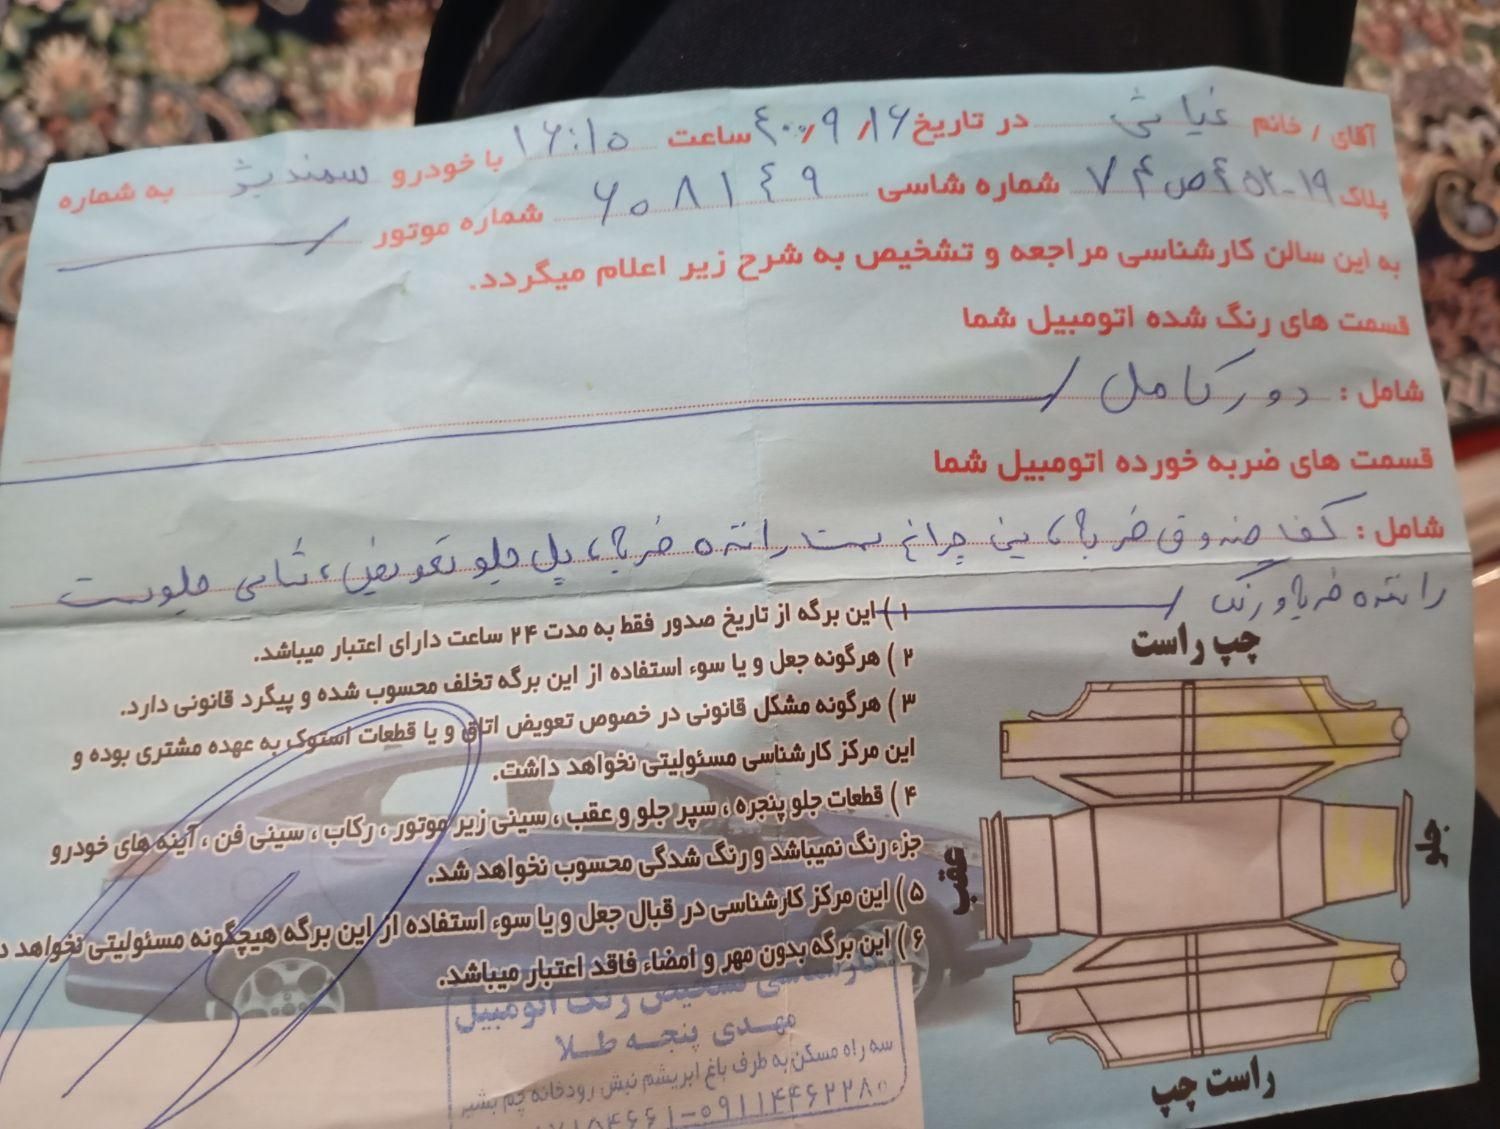 آقای / خانم غیاثی در تاریخ ۴۰۰/۹/۱۶ ساعت ۱۶:۱۵ با خودرو سمند بژ به شماره
پلاک ۱۹-۴۵۲ص۷۴ شماره شاسی ۶۰۸۱۴۹ شماره موتور
به این سالن کارشناسی مراجعه و تشخیص به شرح زیر اعلام میگردد.
قسمت های رنگ شده اتومبیل شما
شامل : دور کامل
قسمت های ضربه خورده اتومبیل شما
شامل : کف صندوق ضربه، سینی چراغ سمت راننده ضربه، پل جلو تعویض، شاسی جلو سمت
راننده ضربه و رنگ
۱ ) این برگه از تاریخ صدور فقط به مدت ۲۴ ساعت دارای اعتبار میباشد.
۲ ) هرگونه جعل و یا سوء استفاده از این برگه تخلف محسوب شده و پیگرد قانونی دارد.
۳ ) هرگونه مشکل قانونی در خصوص تعویض اتاق و یا قطعات استوک به عهده مشتری بوده و
این مرکز کارشناسی مسئولیتی نخواهد داشت.
۴ ) قطعات جلو پنجره ، سپر جلو و عقب ، سینی زیر موتور ، رکاب ، سینی فن ، آینه های خودرو
جزء رنگ نمیباشد و رنگ شدگی محسوب نخواهد شد.
۵ ) این مرکز کارشناسی در قبال جعل و یا سوء استفاده از این برگه هیچگونه مسئولیتی نخواهد د
۶ ) این برگه بدون مهر و امضاء فاقد اعتبار میباشد.
چپ راست
جلو
عقب
راست چپ
کارشناسی تشخیص رنگ اتومبیل
مهدی پنجه طلا
سه راه مسکن به طرف باغ ابریشم نبش رودخانه چم بشیر
۰۹۱۱۴۴۶۲۲۸۰